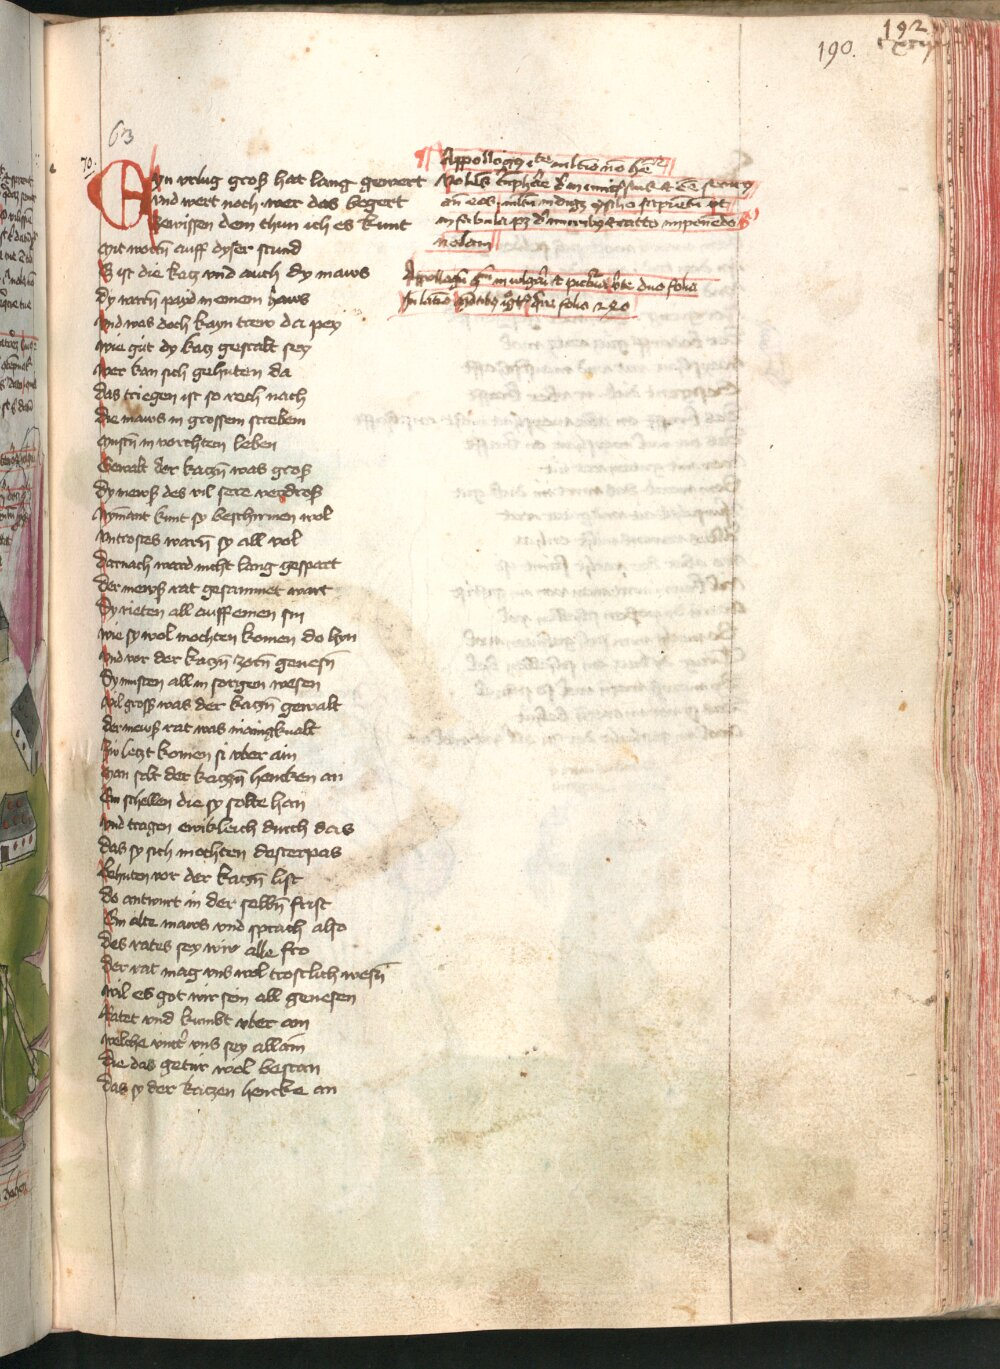 192
190.
63
70.
Eyn urlug groß hat lang gewert
und wert noch wer das begert
Zewissen dem thun ich es kunt
Mit wortn auff dyser stund
Es ist die kacz und auch dy maws
dy warn payd in einem haws
und was doch kayn trew da pey
wie gut dy kacz gestalt sey
wer kan sich gehuten da
das triegen ist so rech nach
die maws in grossem strebem
Mustn in vorchten leben
Gewalt der kaczn was groß
Dy mewß des vil sere verdroß
Nymant kunt sy beschirmen wol
untrostes warn sy all vol
darnach ward nicht lang gespart
der mewß rat gesammet wart
Sy rieten all auff einen sin
wie sy wol mochten komen do hyn
und vor der kaczn zorn genesn
Sy musten all in sorgen wesen
vil gross was der kaczn gewalt
der mewß rat was manigkualt
zw leczt komen si uber ain
man solt der kaczn hencken an
Ein schellen die sy solte han
und tragen ewikleich durch das
das sy sich mochten dester pas
behuten vor der kaczn list
do antwurt in der selbn frist
Ein alte maws und sprach also
des rates sey wir alle fro
der rat mag uns wol trostlich wesn
wil es got wir sein all genesen
Ratet und kumbt uber ain
welche unter uns sey allain
die das getur wol bestan
das sy der kaczen hencke an
in fabula
nolam
in vulgari duo folia
folia 220